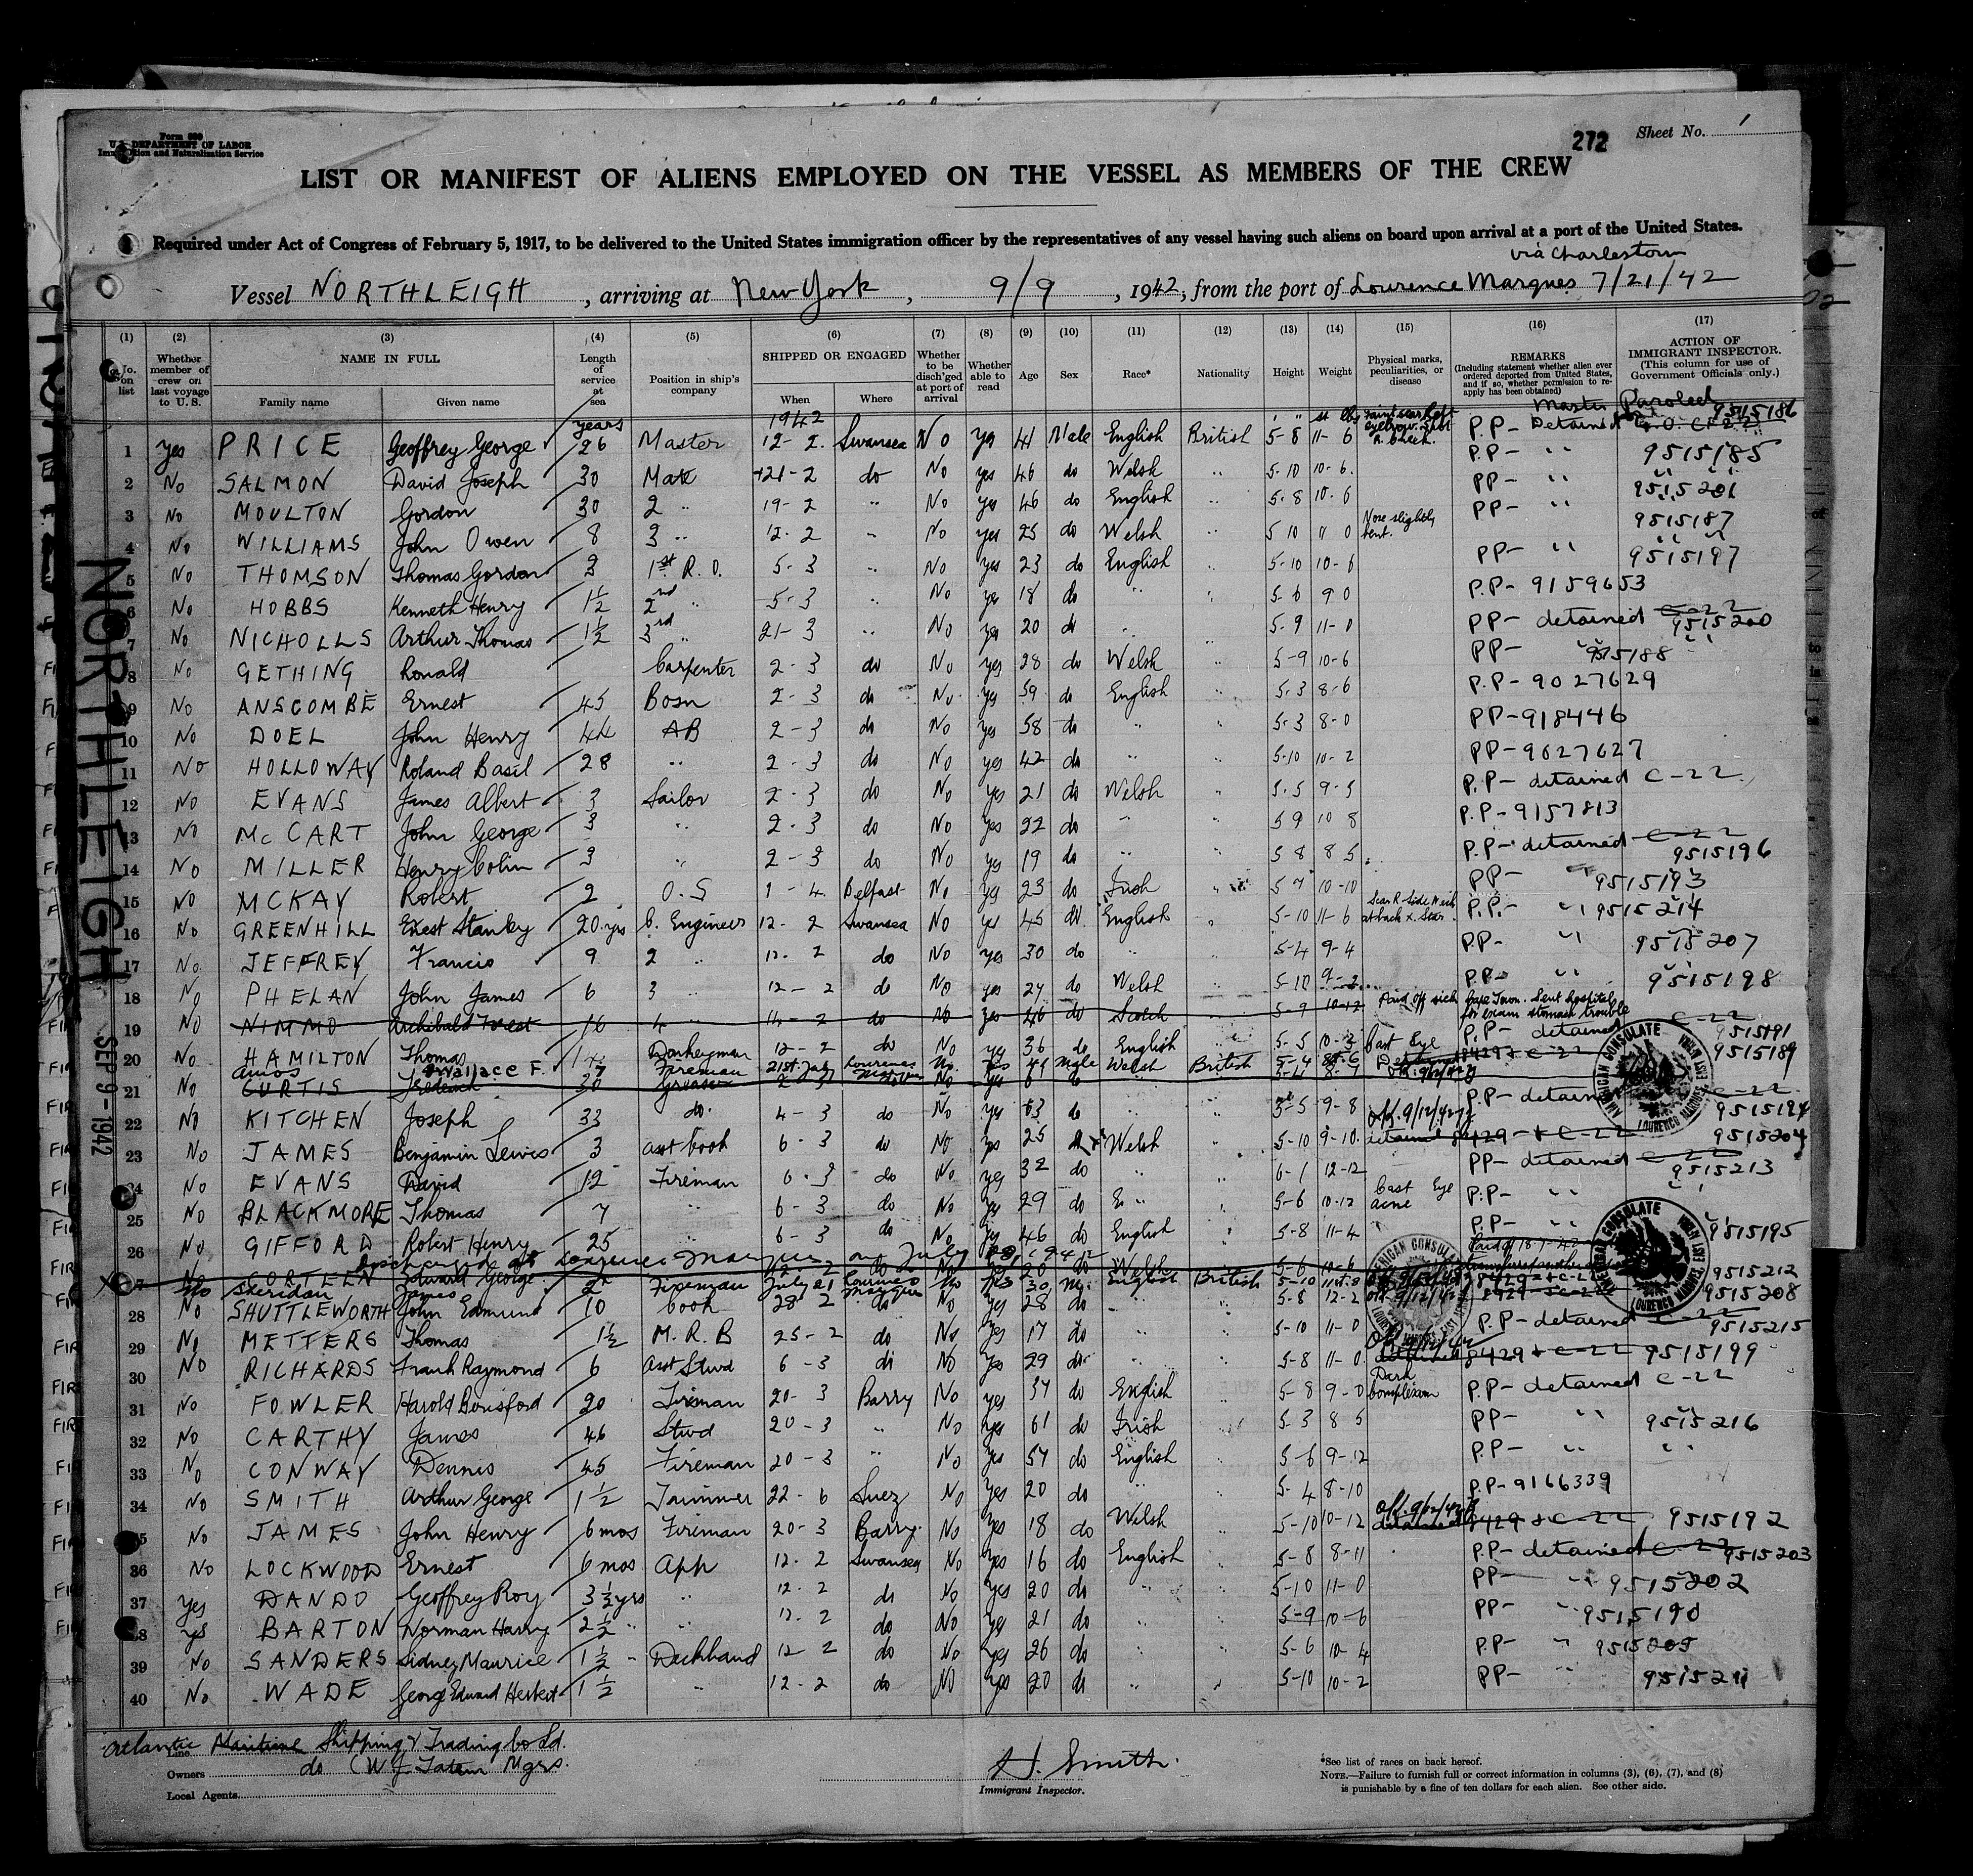 Form 680
U.S. DEPARTMENT OF LABOR
Immigration and Naturalization Service
272 Sheet No. 1
LIST OR MANIFEST OF ALIENS EMPLOYED ON THE VESSEL AS MEMBERS OF THE CREW
Required under Act of Congress of February 5, 1917, to be delivered to the United States immigration officer by the representatives of any vessel having such aliens on board upon arrival at a port of the United States.
via Charlestown
Vessel NORTHLEIGH, arriving at New York, 9/9, 1942, from the port of Lourence Marques 7/21/42
(1) (2) (3) (4) (5) (6) (7) (8) (9) (10) (11) (12) (13) (14) (15) (16) (17)
No. on list
Whether member of crew on last voyage to U.S.
NAME IN FULL
Family name Given name
Length of service at sea
Position in ship's company
SHIPPED OR ENGAGED
When Where
Whether to be disch'ged at port of arrival
Whether able to read
Age Sex Race* Nationality Height Weight
Physical marks, peculiarities, or disease
REMARKS
(Including statement whether alien ever ordered deported from United States, and if so, whether permission to re-apply has been obtained)
ACTION OF IMMIGRANT INSPECTOR.
(This column for use of Government Officials only.)
years 1942 st lbs Master Paroled 9515186
1 Yes PRICE Geoffrey George 26 Master 12-2 Swansea No Yes 41 Male English British 5-8 11-6 P.P- Detained
2 No SALMON David Joseph 30 Mate 21-2 do No yes 46 do Welsh " 5-10 10-6 P.P- " 9515185
3 No MOULTON Gordon 30 2 " 19-2 " No yes 46 do English " 5-8 10-6 PP- " 9515201
4 No WILLIAMS John Owen 8 3 " 12-2 " No yes 25 do Welsh " 5 10 11 0 Nose slightly bent. PP- " 9515187
5 No THOMSON Thomas Gordon 3 1st R.O. 5-3 " No yes 23 do English 5-10 10-6 PP- " 9515197
6 No HOBBS Kenneth Henry 1½ 2nd " 5-3 " No yes 18 do " 5-6 9 0 P.P- 9159653
7 No NICHOLLS Arthur Thomas 1½ 3rd " 21-3 " No yes 20 do " 5-9 11-0 PP- detained C-22 9515200
8 No GETHING Ronald Carpenter 2-3 do No yes 28 do Welsh " 5-9 10-6 PP- " 9515188
9 No ANSCOMBE Ernest 45 Bosn 2-3 do No yes 59 do English 5-3 8-6 P.P- 9027629
10 No DOEL John Henry 44 AB 2-3 do No yes 58 do " 5-3 8-0 PP-918446
11 No HOLLOWAY Roland Basil 28 " 2-3 do No yes 42 do " 5-10 10-2 PP-9027627
12 No EVANS James Albert 3 Sailor 2-3 do No yes 21 do Welsh " 5-5 9-5 P.P- detained C-22
13 No McCART John George 3 " 2-3 do No yes 22 do " 5 9 10 8 P.P-9157813
14 No MILLER Henry Colin 3 " 2-3 do No yes 19 do " 5 8 8 5 P.P- detained C-22 9515196
15 No MCKAY Robert 2 O.S 1-4 Belfast No yes 23 do Irish " 5 7 10-10 PP- " 9515193
16 No GREENHILL Ernest Stanley 20 yrs C. Engineer 12-2 Swansea No yes 45 do English 5-10 11-6 P.P.- " 9515214
17 No JEFFREY Francis 9 2 " 12-2 do No yes 30 do " 5-4 9-4 PP- " 9515207
18 No PHELAN John James 6 3 " 12-2 do No yes 24 do Welsh 5-10 PP- " 9515198
19 No NIMMO Archibald 16 4 " 14-2 do No yes 46 do Scotch 5-9 10-12 Paid off sick Cape Town. Sent hospital for exam stomach trouble
20 No HAMILTON Thomas Donkeyman 12-2 do No yes 36 do English 5-5 10-3 Cast Eye P.P- detained C-22 9515191
Amos Wallace F. Fireman 21st July Lourenco Marques No Yes 49 Male Welsh British 5-4 9515189
21 No CURTIS Frederick 30 Greaser 2-3 No yes
22 No KITCHEN Joseph 33 do. 4-3 do No yes 63 do " 5-5 9-8 P.P- detained C-22 9515194
23 No JAMES Benjamin Lewis 3 asst cook 6-3 do No yes 25 Welsh " 5-10 9-10 detained 8429 + C-22 9515204
24 No EVANS David 12 Fireman 6-3 do No yes 32 do 6-1 12-12 PP- detained C-22 9515213
25 No BLACKMORE Thomas 7 " 6-3 do No yes 29 do " 5-6 10-12 Cast Eye acne P.P- "
26 No GIFFORD Robert Henry 25 6-3 do No yes 46 do English 5-8 11-4 P.P- " 9515195
Discharged at Lourenco Marques on July
No CORTEEN Edward George 12-2 do No Welsh 5-6 10-6
No Sheridan James 2 Fireman July 21 Lourenco Marques No Yes 30 M. English British 5-10 8429 + C-22 9515212
28 No SHUTTLEWORTH John Edmund 10 Cook 28 2 do No yes 28 do 5-8 12-2 9515208
29 No METTERS Thomas 1½ M.R.B 25-2 do No Yes 17 do " 5-10 11-0 P.P- detained C-22 9515215
30 No RICHARDS Frank Raymond 6 Asst Stwd 6-3 do No Yes 29 do " 5-8 11-0 8429 + C-22 9515199
31 No FOWLER Harold 20 Fireman 20-3 Barry No yes 37 do English 5-8 9-0 Dark Complexion P.P- detained C-22
32 No CARTHY James 46 Stwd 20-3 " No yes 61 do Irish 5-3 8 5 PP- " 9515216
33 No CONWAY Dennis 45 Fireman 20-3 " No Yes 54 do English " 5-6 9-12 P.P- " "
34 No SMITH Arthur George 1½ Trimmer 22-6 Suez No Yes 20 do " 5-4 8-10 P.P-9166339
35 No JAMES John Henry 6 mos Fireman 20-3 Barry No Yes 18 do Welsh " 5-10 10-12 detained 8429 + C-22 9515192
36 No LOCKWOOD Ernest 6 mos App 12-2 Swansea No Yes 16 do English 5-8 8-11 P.P- detained C-22 9515203
37 Yes DANDO Geoffrey Roy 3½ yrs " 12-2 do No Yes 20 do " 5-10 11-0 PP- " 9515202
38 yes BARTON Norman Harry 2½ " " 12-2 do No yes 21 do " 5-9 10-6 PP- " 9515190
39 No SANDERS Sidney Maurice 1½ " Deckhand 12-2 do No yes 26 do " 5-6 10-4 P.P- " 9515205
40 No WADE George Edward Herbert 1½ " 12-2 do No yes 20 do " 5-10 10-2 PP- " 9515211
NORTHLEIGH
SEP 9-1942
AMERICAN CONSULATE
LOURENCO MARQUES
AMERICAN CONSULATE
LOURENCO MARQUES
AMERICAN CONSULATE
Line Atlantic Maritime Shipping & Trading Co Ld.
Owners do (W J Tatem Mgrs.
Local Agents
H. Smith.
Immigrant Inspector.
*See list of races on back hereof.
NOTE.—Failure to furnish full or correct information in columns (3), (6), (7), and (8)
is punishable by a fine of ten dollars for each alien. See other side.